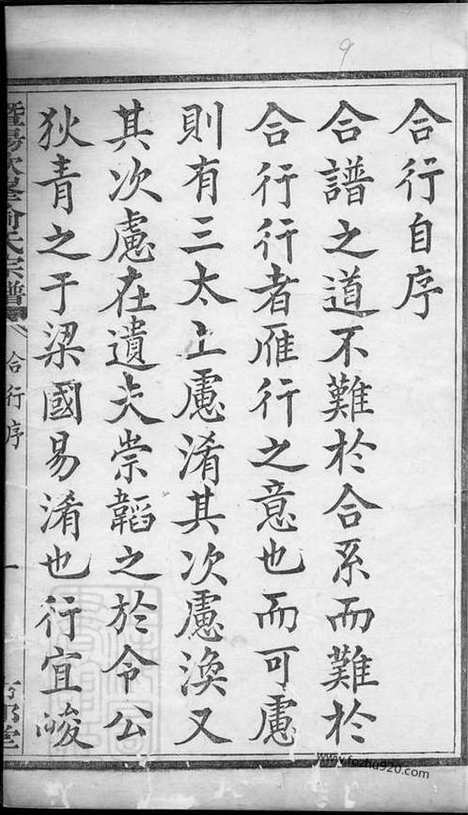 合行自序
合譜之道不難於合系而難於
合行行者雁行之意也而可慮
則有三太上慮淆其次慮渙又
其次慮在遺夫崇韜之於令公
狄青之于梁國易淆也行宜峻
俞氏宗譜
合行序
一
www.fozhu920.com
9